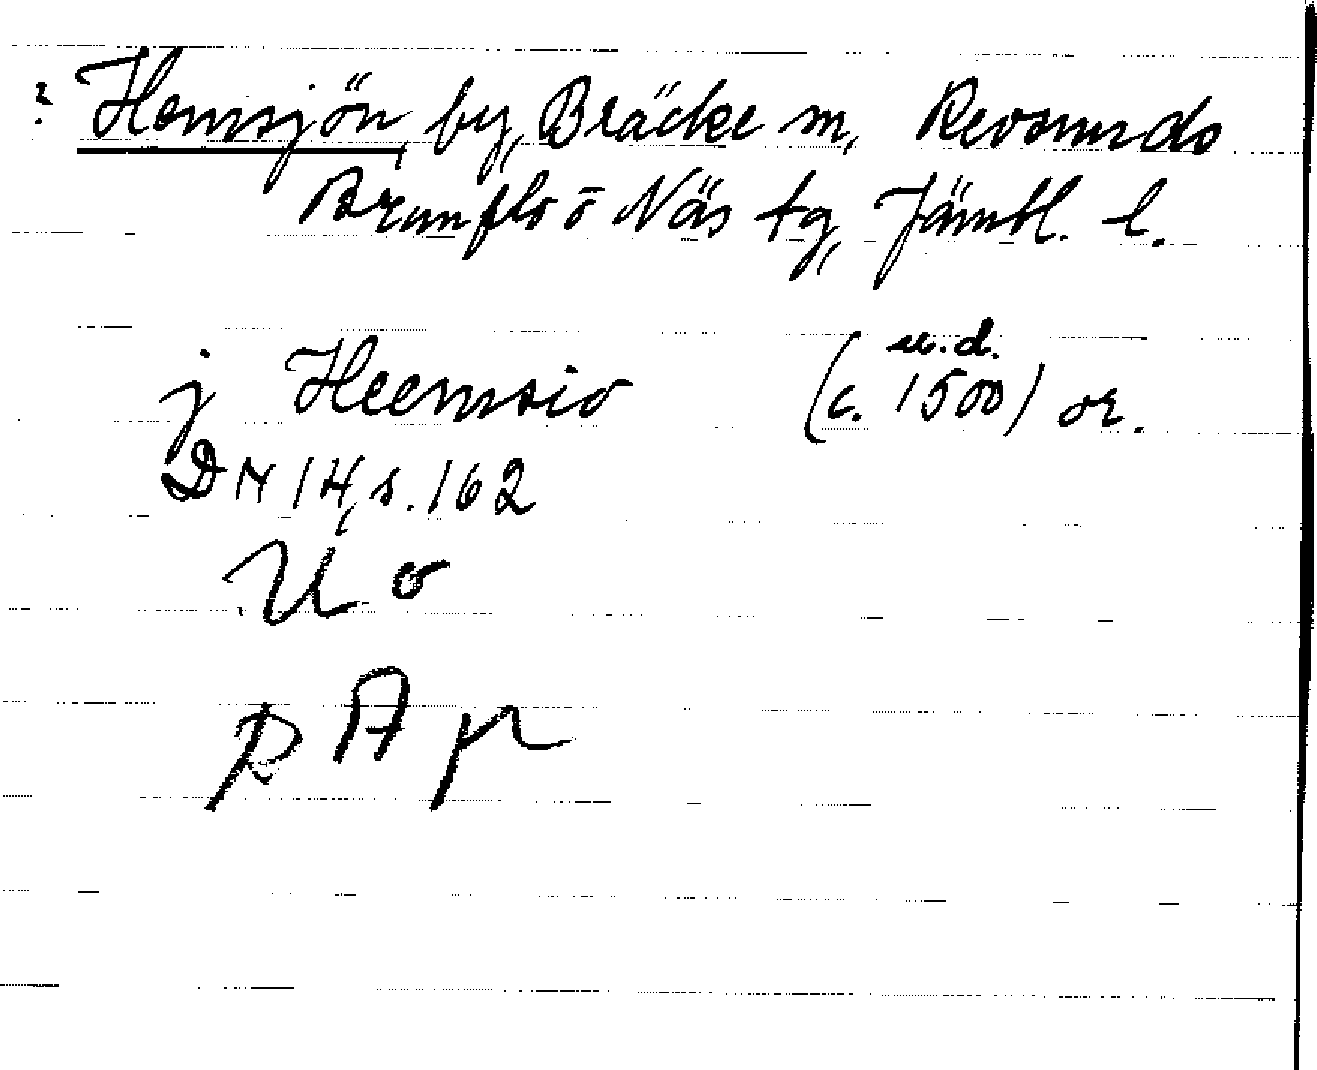 ? Hemsjön, by, Bräcke sn, Revsunds
Brunflo o Näs tg, Jämtl. l.
j Heemsio (u.d. c. 1500) or.
DN 14, s. 162